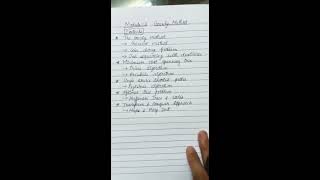 Module 3 Greedy Method
(Contents)
* The Greedy method
→ General method
→ Coin change problem
→ Job sequencing with deadlines
* Minimum cost spanning tree
→ Prim's algorithm
→ Kruskal's algorithm
* Single source shortest paths
→ Dijkstra's algorithm
* Optimal Tree problem
→ Huffman Trees & codes
* Transform & Conquer Approach
→ Heaps & Heap Sort